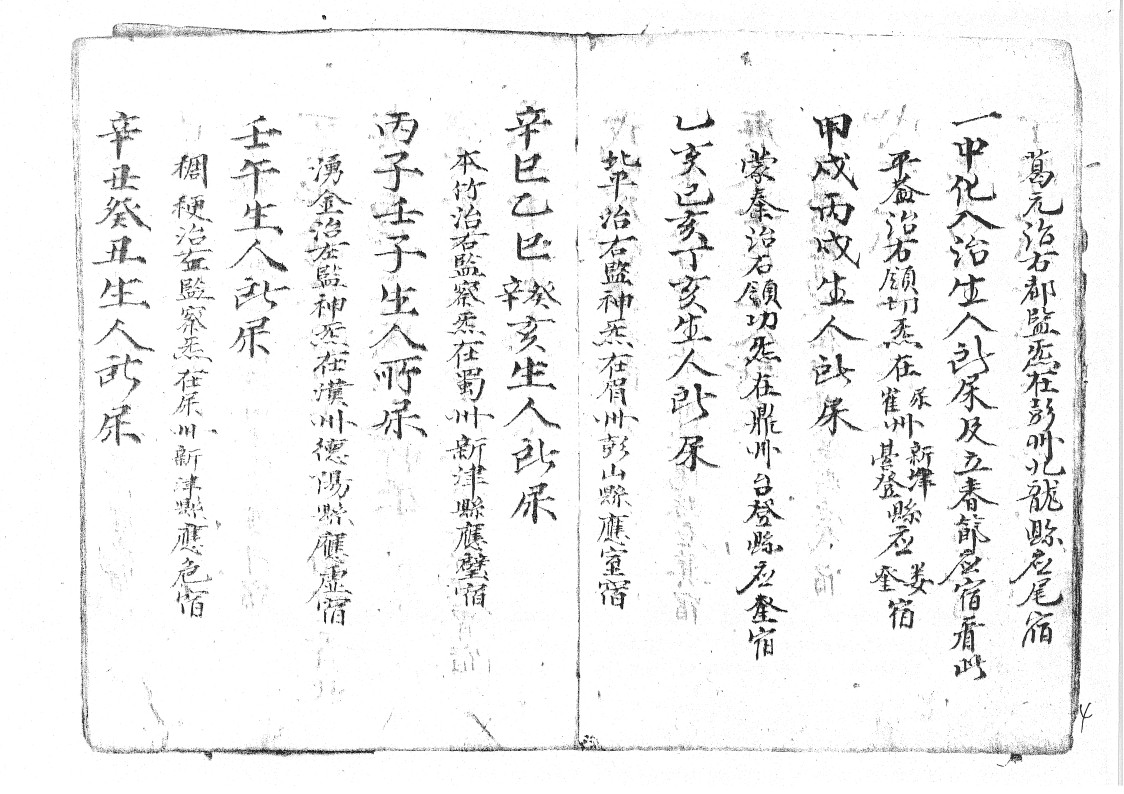 葛元治右都監炁在彭州九龍縣应尾宿
一中化八治生人所属及五春節应宿看此
平葢治右領功炁在雀州䑓登縣应奎宿
属 新津 娄
甲戌丙戌生人所属
蒙秦治右領功炁在雅州台登縣应奎宿
乙亥己亥丁亥生人所属
北平治右監神炁在眉州彭山縣應室宿
辛巳乙巳辛癸亥生人所属
本竹治右監察炁在蜀州新津縣應壁宿
丙子壬子生人所属
湧金治左監神炁在漢州德陽縣應虚宿
壬午生人所属
稠稉治左監察炁在属州新津縣應危宿
辛丑癸丑生人所属
4